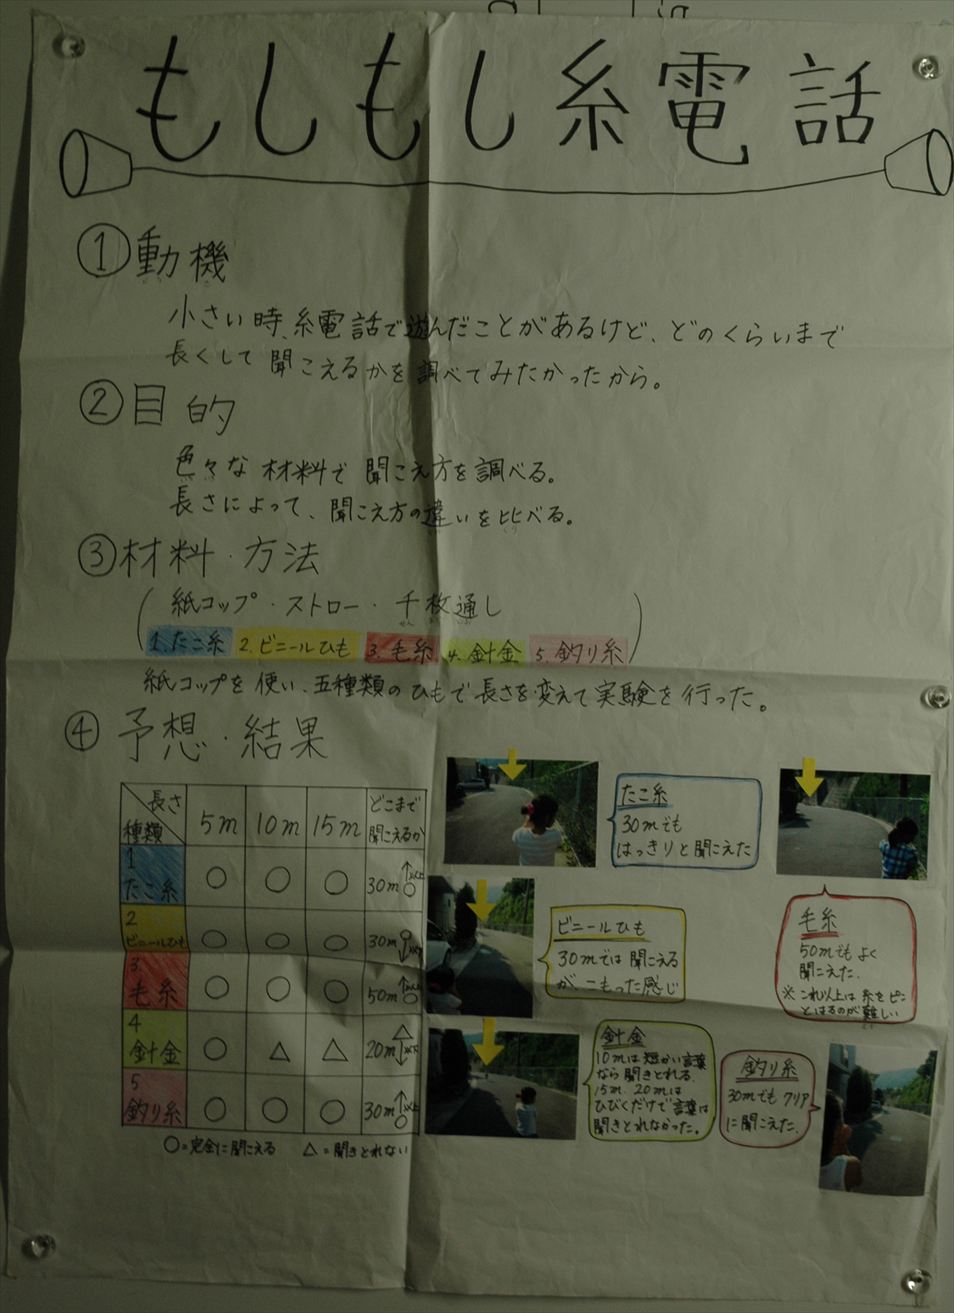 もしもし糸電話
①動機
小さい時、糸電話で遊んだことがあるけど、どのくらいまで
長くして聞こえるかを調べてみたかったから。
②目的
色々な材料で聞こえ方を調べる。
長さによって、聞こえ方の違いを比べる。
③材料・方法
(紙コップ・ストロー・千枚通し
1.たこ糸 2.ビニールひも 3.毛糸 4.針金 5.釣り糸)
紙コップを使い、五種類のひもで長さを変えて実験を行った。
④予想・結果
長さ 種類 5m 10m 15m どこまで聞こえるか
1 たこ糸 ○ ○ ○ 30m ↑以上 ○
2 ビニールひも ○ ○ ○ 30m ○ ↓以下
3. 毛糸 ○ ○ ○ 50m ↑以上 ○
4 針金 ○ △ △ 20m △ ↓以下
5 釣り糸 ○ ○ ○ 30m ↑以上 ○
○=完全に聞こえる △=聞きとれない
たこ糸
30mでも
はっきりと聞こえた
ビニールひも
30mでは聞こえる
がこもった感じ
毛糸
50mでもよく
聞こえた.
※これ以上は糸をピン
とはるのが難しい
針金
10mは短かい言葉
なら聞きとれる.
15m、20mは
ひびくだけで言葉は
聞きとれなかった。
釣り糸
30mでもクリア
に聞こえた.